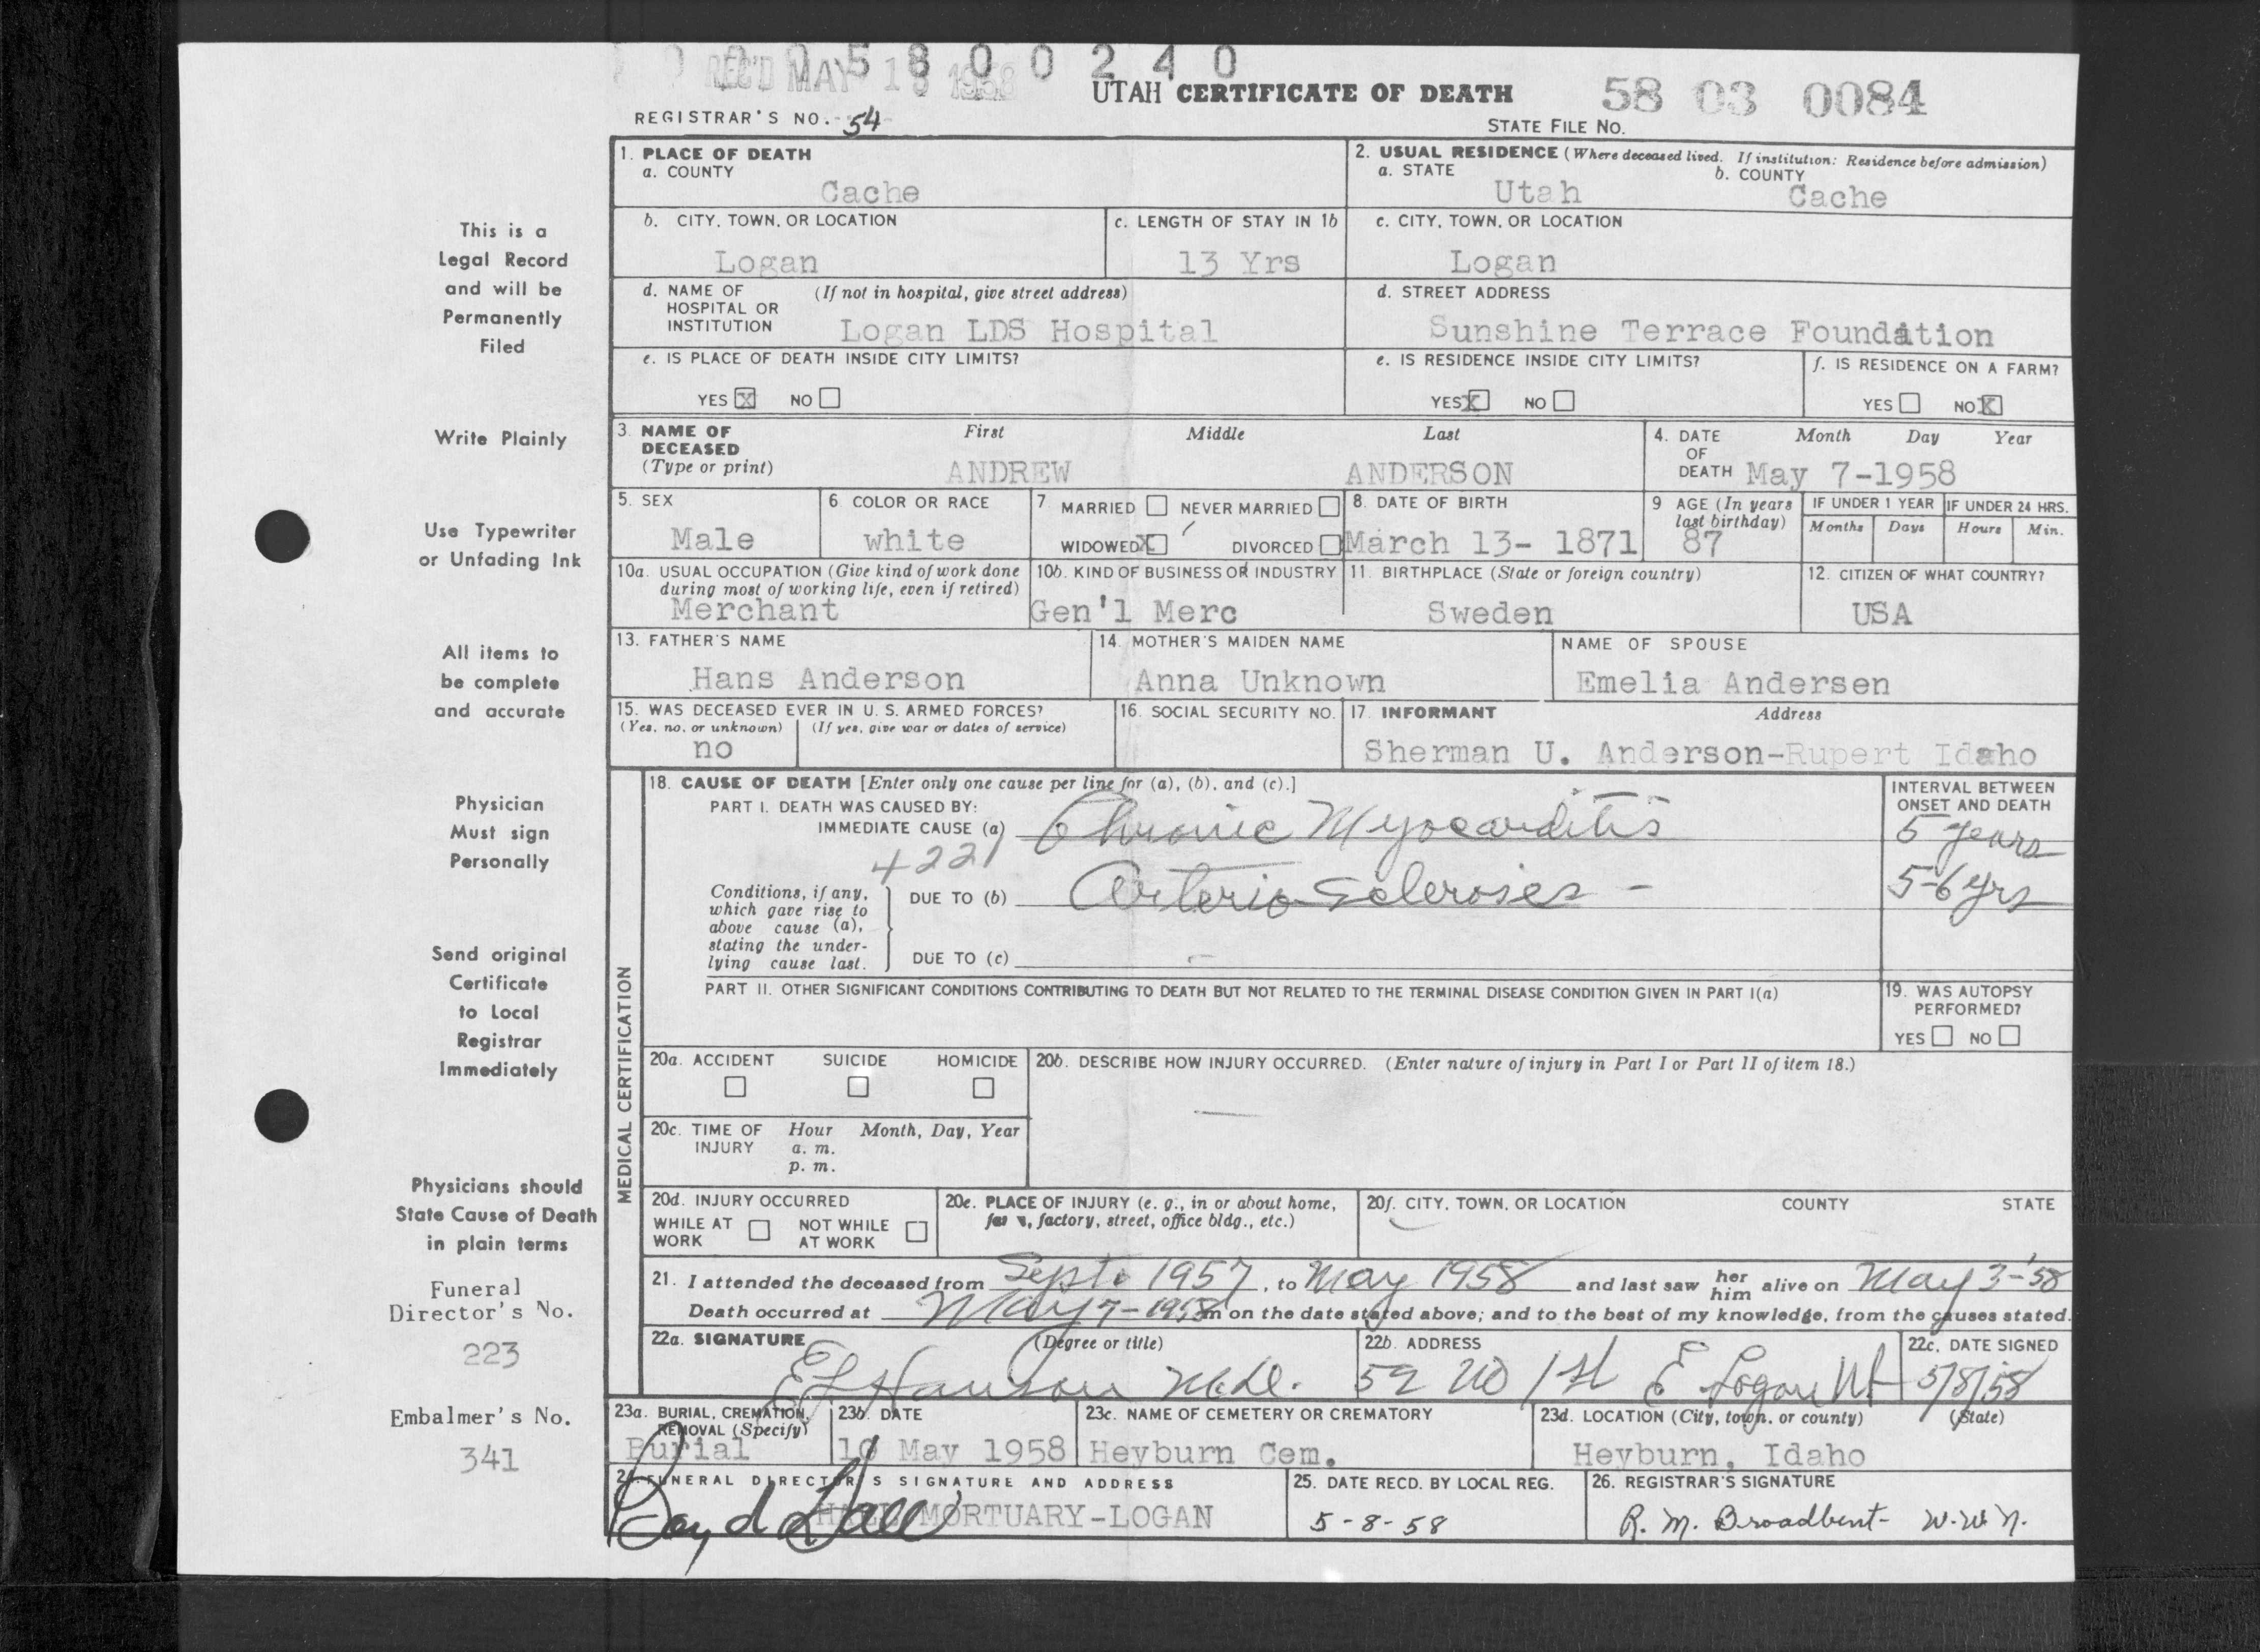 0 0 0 5 8 0 0 2 4 0
REC'D MAY 13 1958
UTAH CERTIFICATE OF DEATH
58 03 0084
REGISTRAR'S NO. 54
STATE FILE NO.
1. PLACE OF DEATH
a. COUNTY
Cache
2. USUAL RESIDENCE (Where deceased lived. If institution: Residence before admission)
a. STATE
b. COUNTY
Utah
Cache
b. CITY, TOWN, OR LOCATION
c. LENGTH OF STAY IN 1b
c. CITY, TOWN, OR LOCATION
Logan
13 Yrs
Logan
d. NAME OF HOSPITAL OR INSTITUTION
(If not in hospital, give street address)
Logan LDS Hospital
d. STREET ADDRESS
Sunshine Terrace Foundation
e. IS PLACE OF DEATH INSIDE CITY LIMITS?
YES X NO
e. IS RESIDENCE INSIDE CITY LIMITS?
YES X NO
f. IS RESIDENCE ON A FARM?
YES NO X
3. NAME OF DECEASED
(Type or print)
First Middle Last
ANDREW ANDERSON
4. DATE OF DEATH
Month Day Year
May 7-1958
5. SEX
Male
6. COLOR OR RACE
white
7. MARRIED NEVER MARRIED
WIDOWED X DIVORCED
8. DATE OF BIRTH
March 13- 1871
9 AGE (In years last birthday)
87
IF UNDER 1 YEAR
Months Days
IF UNDER 24 HRS.
Hours Min.
10a. USUAL OCCUPATION (Give kind of work done during most of working life, even if retired)
Merchant
10b. KIND OF BUSINESS OR INDUSTRY
Gen'l Merc
11. BIRTHPLACE (State or foreign country)
Sweden
12. CITIZEN OF WHAT COUNTRY?
USA
13. FATHER'S NAME
Hans Anderson
14. MOTHER'S MAIDEN NAME
Anna Unknown
NAME OF SPOUSE
Emelia Andersen
15. WAS DECEASED EVER IN U. S. ARMED FORCES?
(Yes, no, or unknown) (If yes, give war or dates of service)
no
16. SOCIAL SECURITY NO.
17. INFORMANT Address
Sherman U. Anderson-Rupert Idaho
MEDICAL CERTIFICATION
18. CAUSE OF DEATH [Enter only one cause per line for (a), (b), and (c).]
PART I. DEATH WAS CAUSED BY:
IMMEDIATE CAUSE (a) Chronic Myocarditis
4221
INTERVAL BETWEEN ONSET AND DEATH
5 years
Conditions, if any, which gave rise to above cause (a), stating the underlying cause last.
DUE TO (b) Arterio Scleroses -
5-6 yrs
DUE TO (c)
PART II. OTHER SIGNIFICANT CONDITIONS CONTRIBUTING TO DEATH BUT NOT RELATED TO THE TERMINAL DISEASE CONDITION GIVEN IN PART I(a)
19. WAS AUTOPSY PERFORMED?
YES NO
20a. ACCIDENT SUICIDE HOMICIDE
20b. DESCRIBE HOW INJURY OCCURRED. (Enter nature of injury in Part I or Part II of item 18.)
20c. TIME OF INJURY
Hour Month, Day, Year
a. m.
p. m.
20d. INJURY OCCURRED
WHILE AT WORK NOT WHILE AT WORK
20e. PLACE OF INJURY (e. g., in or about home, factory, street, office bldg., etc.)
20f. CITY, TOWN, OR LOCATION COUNTY STATE
21. I attended the deceased from Sept. 1957, to May 1958 and last saw her him alive on May 3-'58
Death occurred at May 7-1958 m on the date stated above; and to the best of my knowledge, from the causes stated.
22a. SIGNATURE (Degree or title)
E L Hanson M.D.
22b. ADDRESS
52 No 1st E Logan Ut
22c. DATE SIGNED
5/8/58
23a. BURIAL, CREMATION, REMOVAL (Specify)
Burial
23b. DATE
10 May 1958
23c. NAME OF CEMETERY OR CREMATORY
Heyburn Cem.
23d. LOCATION (City, town, or county) (State)
Heyburn, Idaho
24. FUNERAL DIRECTOR'S SIGNATURE AND ADDRESS
HALL MORTUARY-LOGAN
25. DATE RECD. BY LOCAL REG.
5-8-58
26. REGISTRAR'S SIGNATURE
R. M. Broadbent- W.W.N.
This is a
Legal Record
and will be
Permanently
Filed
Write Plainly
Use Typewriter
or Unfading Ink
All items to
be complete
and accurate
Physician
Must sign
Personally
Send original
Certificate
to Local
Registrar
Immediately
Physicians should
State Cause of Death
in plain terms
Funeral
Director's No.
223
Embalmer's No.
341